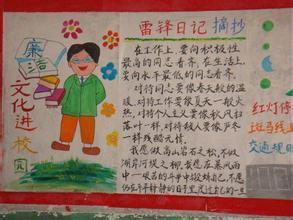 廉洁
文化进校园
雷锋日记 摘抄
在工作上,要向积极性
最高的同志看齐,在生活上,
要向水平最低的同志看齐。
对待同志要像春天般的温
暖,对待工作要像夏天一般火
热,对待个人主义要像秋风扫
落叶一样,对待敌人要像严冬
一样残酷无情。
我愿做高山岩石之松,不做
湖岸河坡之柳,我愿在暴风雨
中
红灯停
斑马线
交通规则